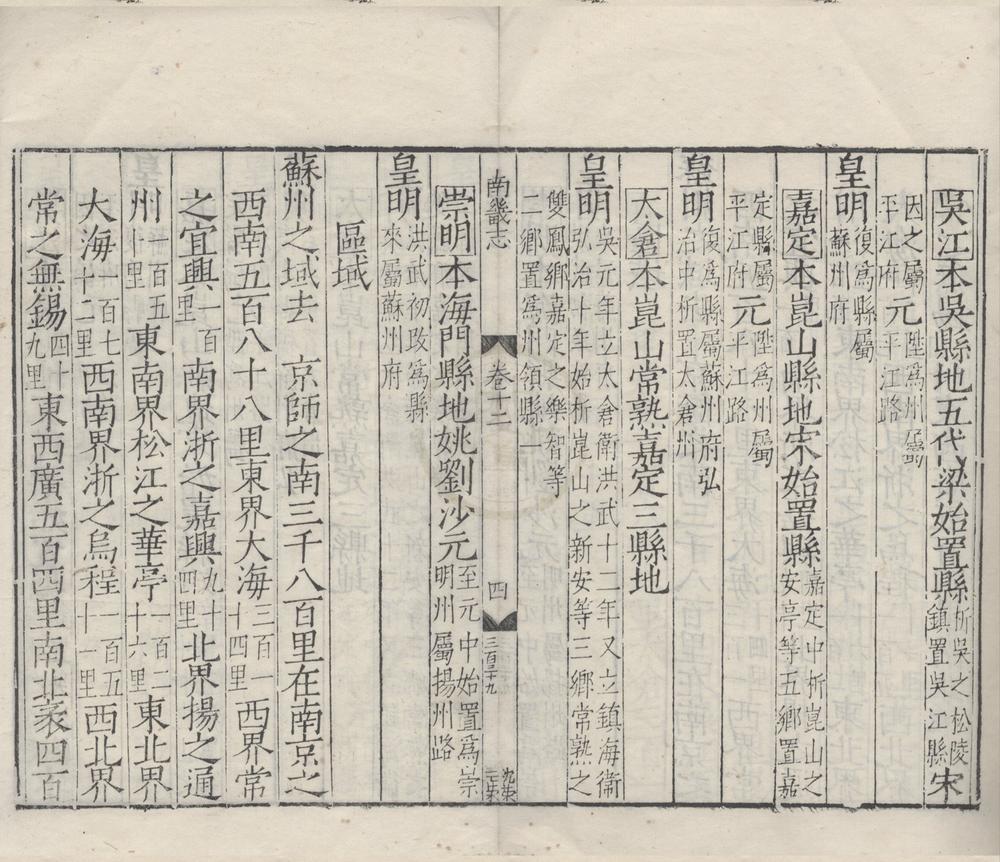 吳江本吳縣地五代梁始置縣析吳之松陵鎮置吳江縣宋
因之屬平江府元陞為州屬平江路
皇明復為縣屬蘇州府
嘉定本崑山縣地宋始置縣嘉定中析崑山之安亭等五鄉置嘉
定縣屬平江府元陞為州屬平江路
皇明復為縣屬蘇州府弘治中析置太倉州
太倉本崑山常熟嘉定三縣地
皇明吳元年立太倉衛洪武十二年又立鎮海衛弘治十年始析崑山之新安等三鄉常熟之
雙鳳鄉嘉定之樂智等二鄉置為州領縣一
南畿志 卷十二 四 三百三十九
崇明本海門縣地姚劉沙元至元中始置為崇明州屬揚州路
皇明洪武初改為縣來屬蘇州府
區域
蘇州之域去 京師之南三千八百里在南京之
西南五百八十八里東界大海三百一十四里西界常
之宜興一百里南界浙之嘉興九十四里北界揚之通
州一百五十里東南界松江之華亭一百二十六里東北界
大海一百七十二里西南界浙之烏程一百五十一里西北界
常之無錫四十九里東西廣五百四里南北袤四百